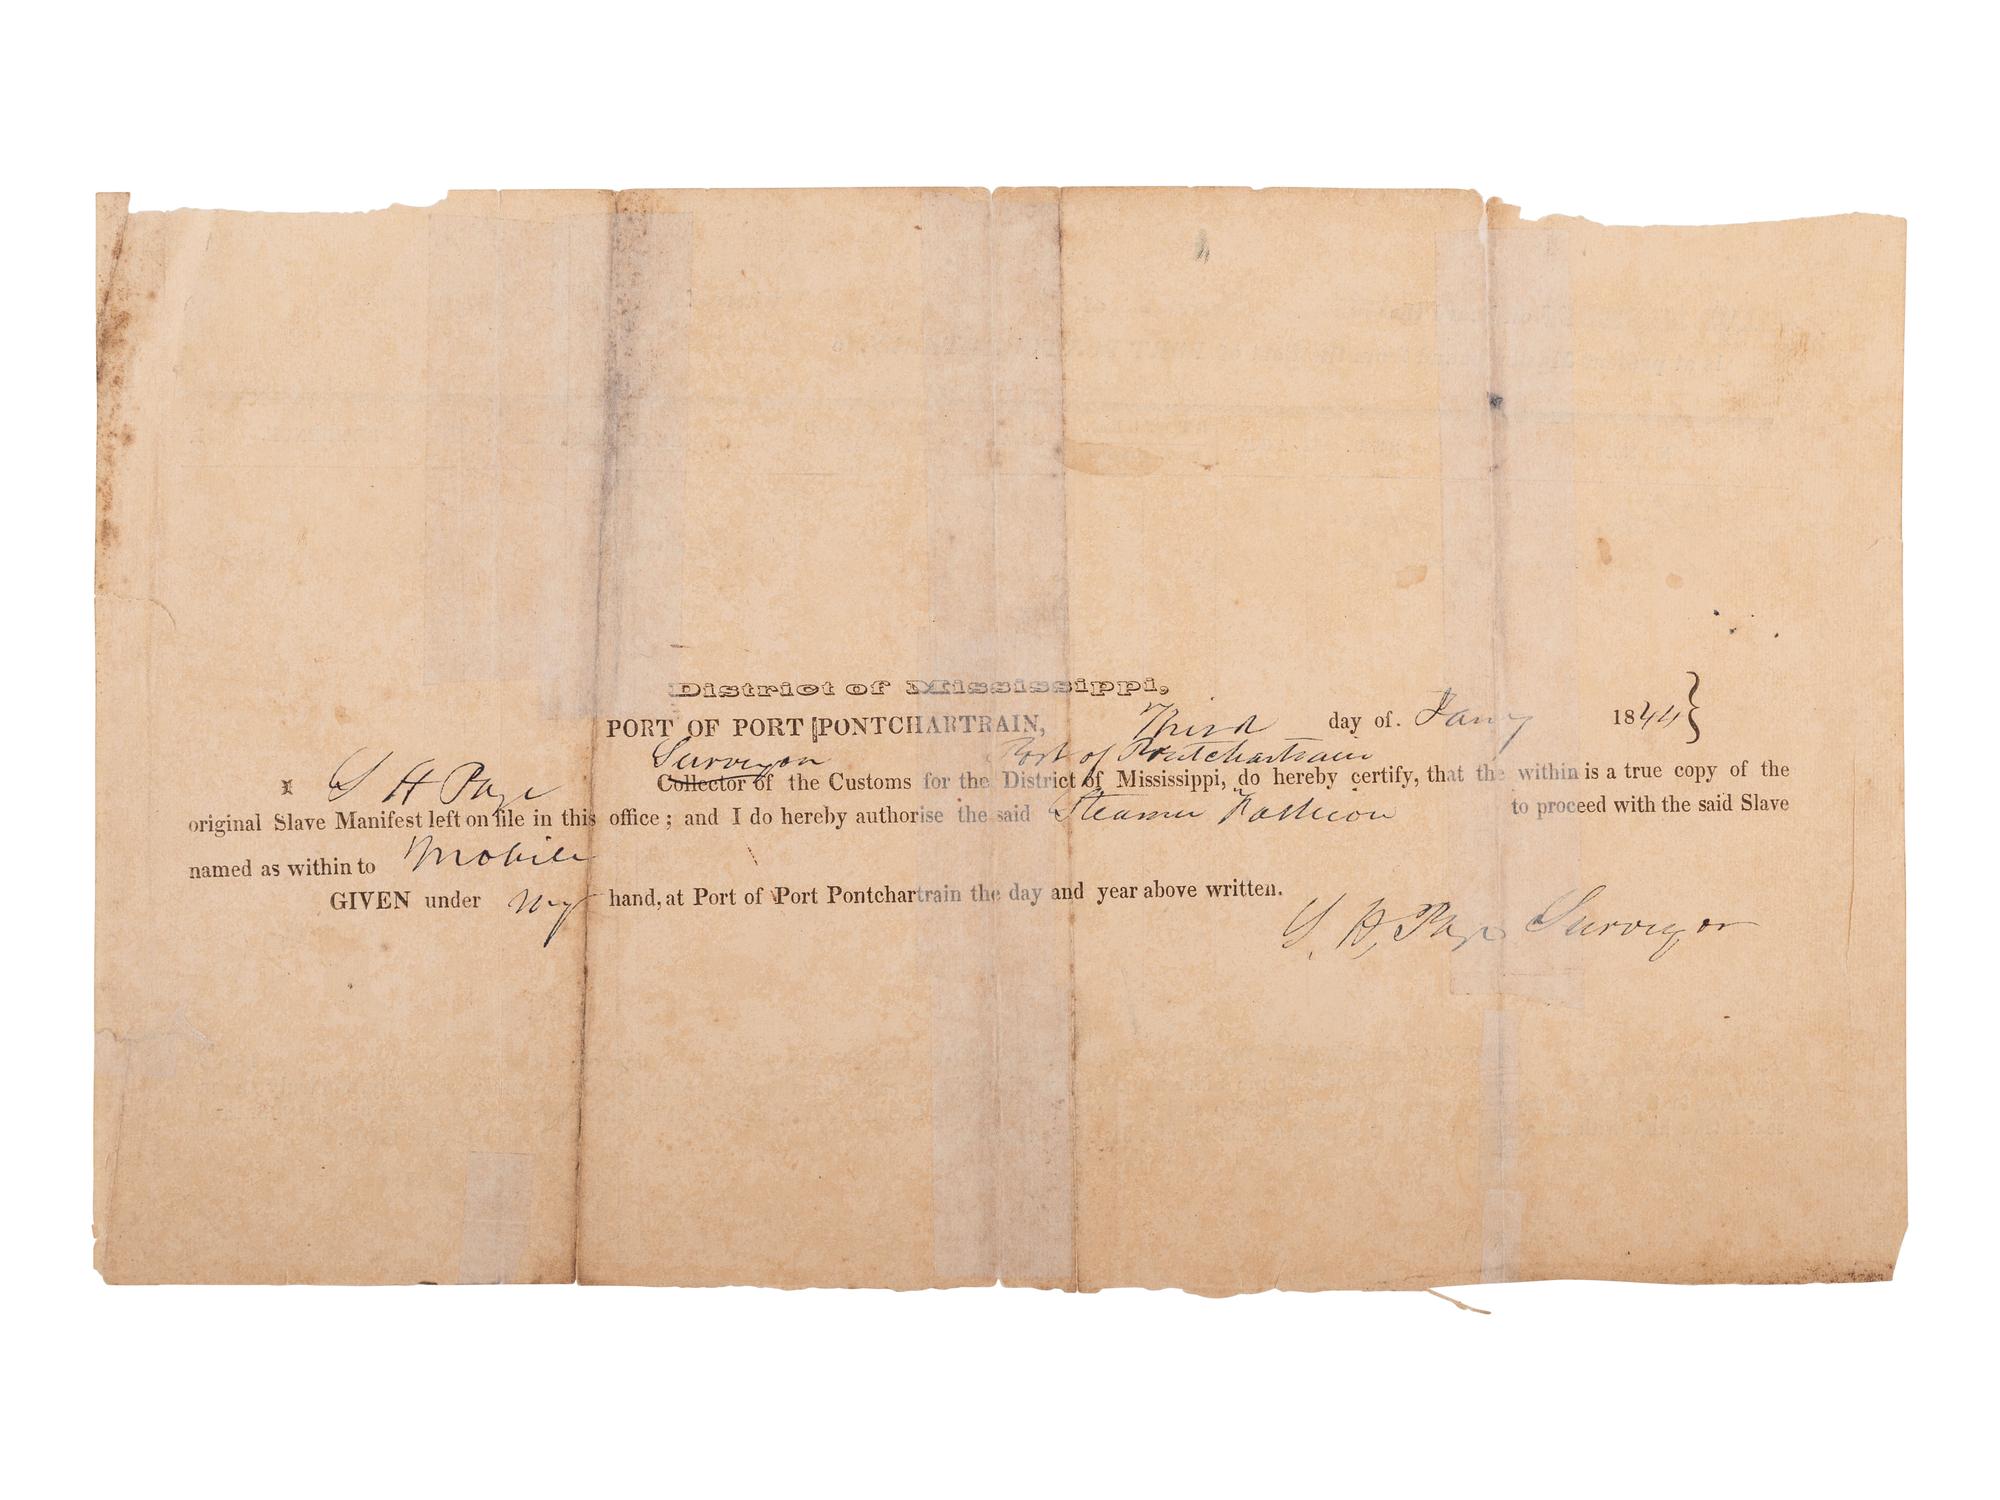 District of Mississippi,
PORT OF PORT PONTCHARTRAIN, Third day of Jany 1844
Surveyor Port of Pontchartrain
I S H Page Collector of the Customs for the District of Mississippi, do hereby certify, that the within is a true copy of the
original Slave Manifest left on file in this office; and I do hereby authorise the said Steamer Fashion to proceed with the said Slave
named as within to Mobile
GIVEN under my hand, at Port of Port Pontchartrain the day and year above written.
S. H. Page Surveyor